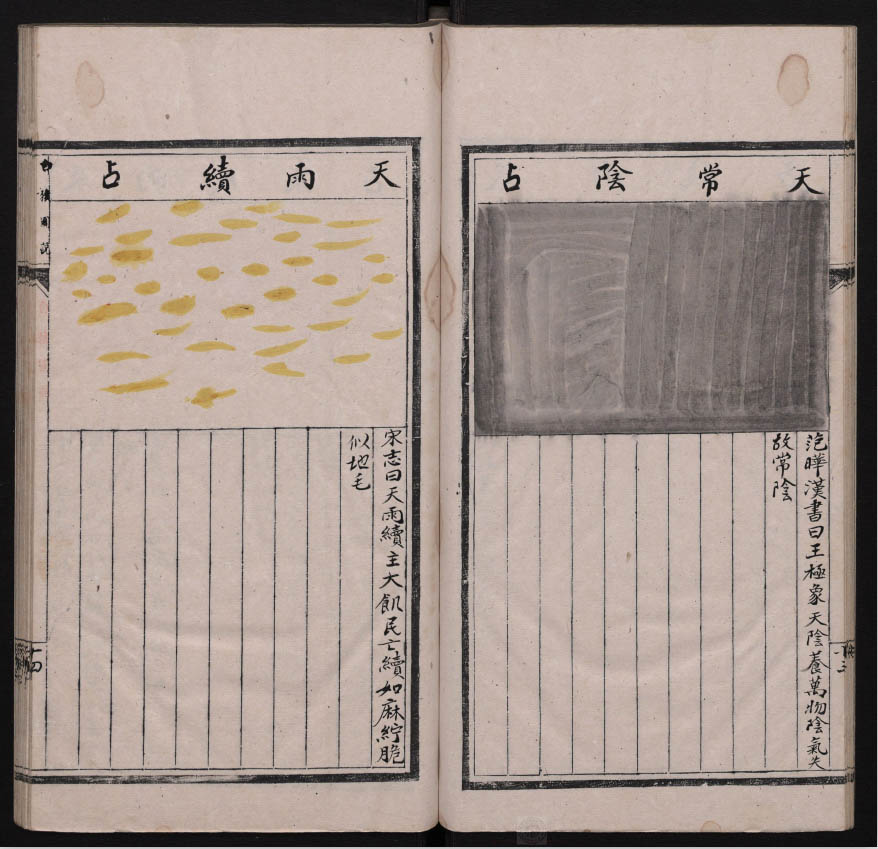 天常陰占
范曄漢書曰王極象天陰養萬物陰氣失
故常陰
天雨續占
宋志曰天雨續主大飢民亡續如麻紵脆
似地毛
十四